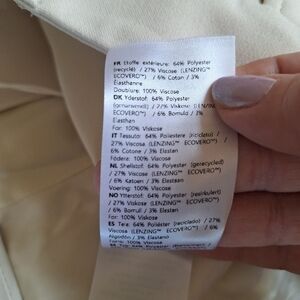 FR Etoffe extérieure: 64% Polyester
(recyclé) / 27% Viscose (LENZING™
ECOVERO™) / 6% Coton / 3%
Elasthanne
Doublure: 100% Viscose
DK Yderstof: 64% Polyester
(genanvendt) / 27% Viskose (LENZING
ECOVERO™) / 6% Bomuld / 3%
Elasthan
For: 100% Viskose
IT Tessuto: 64% Poliestere (riciclato) /
27% Viscosa (LENZING™ ECOVERO™)
/ 6% Cotone / 3% Elastan
Fodera: 100% Viscosa
NL Shellstof: 64% Polyester (gerecycled)
/ 27% Viscose (LENZING™ ECOVERO™)
/ 6% Katoen / 3% Elastan
Voering: 100% Viscose
NO Ytterstof: 64% Polyester (resirkulert)
/ 27% Viskose (LENZING™ ECOVERO™)
/ 6% Bomull / 3% Elastan
For: 100% Viskose
ES Tela: 64% Poliéster (reciclado) / 27%
Viscosa (LENZING™ ECOVERO™) / 6%
Algodón / 3% Elastano
Forro: 100% Viscosa
64% Polyester